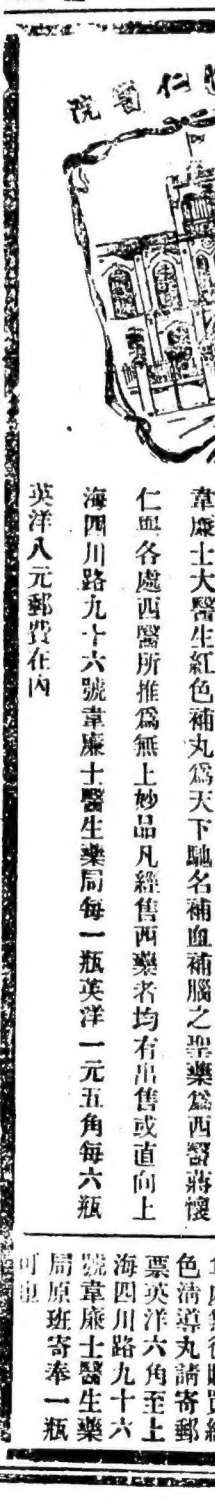 仁醫院
韋廉士大醫生紅色補丸爲天下馳名補血補腦之聖藥爲西醫蔣懷
仁與各處西醫所推爲無上妙品凡經售西藥者均有出售或直向上
海四川路九十六號韋廉士醫生藥局每一瓶英洋一元五角每六瓶
英洋八元郵費在內
色清導丸請寄郵
票英洋六角至上
海四川路九十六
號韋廉士醫生藥
局原班寄奉一瓶
可也